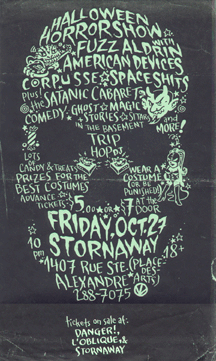 HALLOWEEN
HORRORSHOW
WITH
FUZZ ALDRIN
AMERICAN DEVICES
CORPUSSE SPACESHITS
plus!
the SATANIC CABARET
COMEDY GHOST MAGIC
STORIES
IN THE BASEMENT
and MORE!
TRIP
HOP DJ
LOTS
OF
CANDY & TREATS
PRIZES FOR THE
BEST COSTUMES
WEAR A
COSTUME
(OR BE
PUNISHED)
ADVANCE
TICKETS:
$5.00 OR $7 AT THE
DOOR
FRIDAY, OCT. 27
STORNAWAY
10 pm
18+
1407 RUE STE. (PLACE-
DES-
ARTS)
ALEXANDRE
288-7075
tickets on sale at:
DANGER!,
L'OBLIQUE &
STORNAWAY